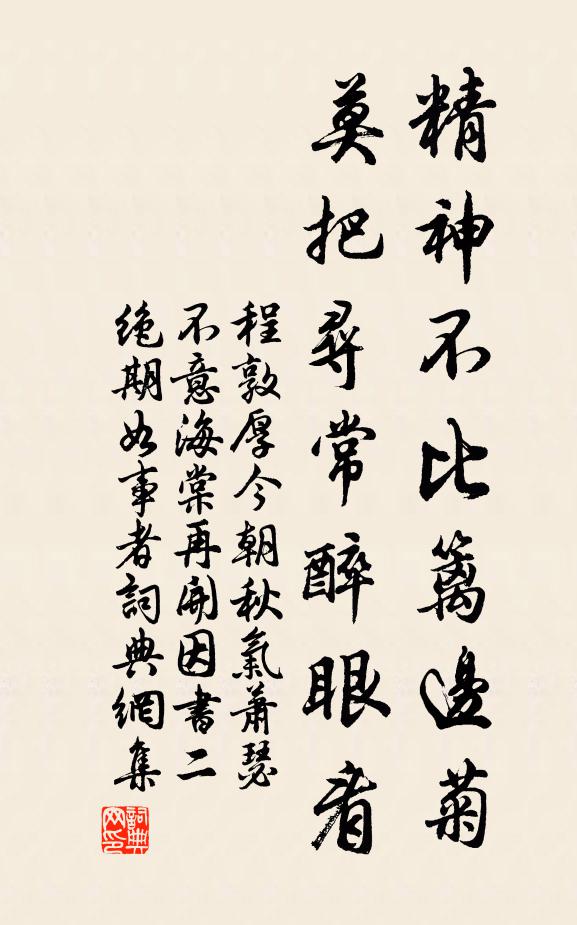 精神不比籬邊菊
莫把尋常醉眼看
程敦厚今朝秋氣蕭瑟
不意海棠再開因書二
絶期如事者詞典網集
詞典
网印